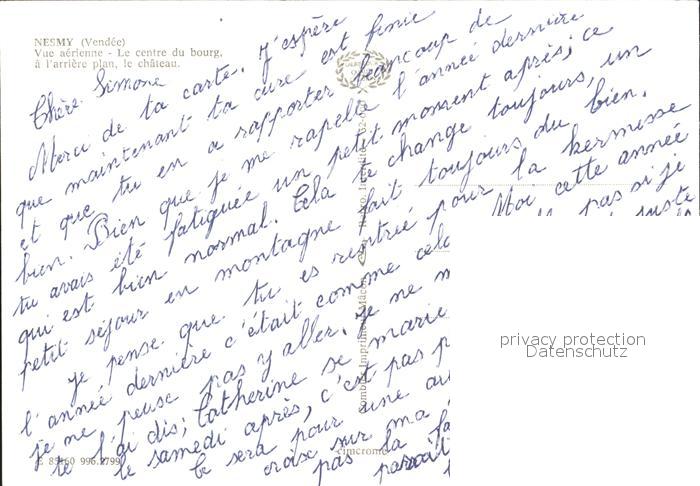 NESMY (Vendée)
Vue aérienne - Le centre du bourg,
à l'arrière plan, le château.
Chère Simone
Merci de ta carte. J'espère
que maintenant ta cure est finie
et que tu en a rapporter beaucoup de
bien. Bien que je me rapelle l'année dernière
tu avais été fatiguée un petit moment après; ce
qui est bien normal. Cela te change toujours, un
petit séjour en montagne fait toujours du bien.
Je pense que tu es rentrée pour la kermesse
l'année dernière c'était comme cela Moi cette année
je ne peuse pas y aller. Je ne pas si je
te l'ai dis; Catherine se marie juste
le samedi après, c'est pas
ce sera pour une
croise sur ma
pas la
E 85160 996.2799
cimcrome
Combier Imprimeur Mâcon
privacy protection
Datenschutz